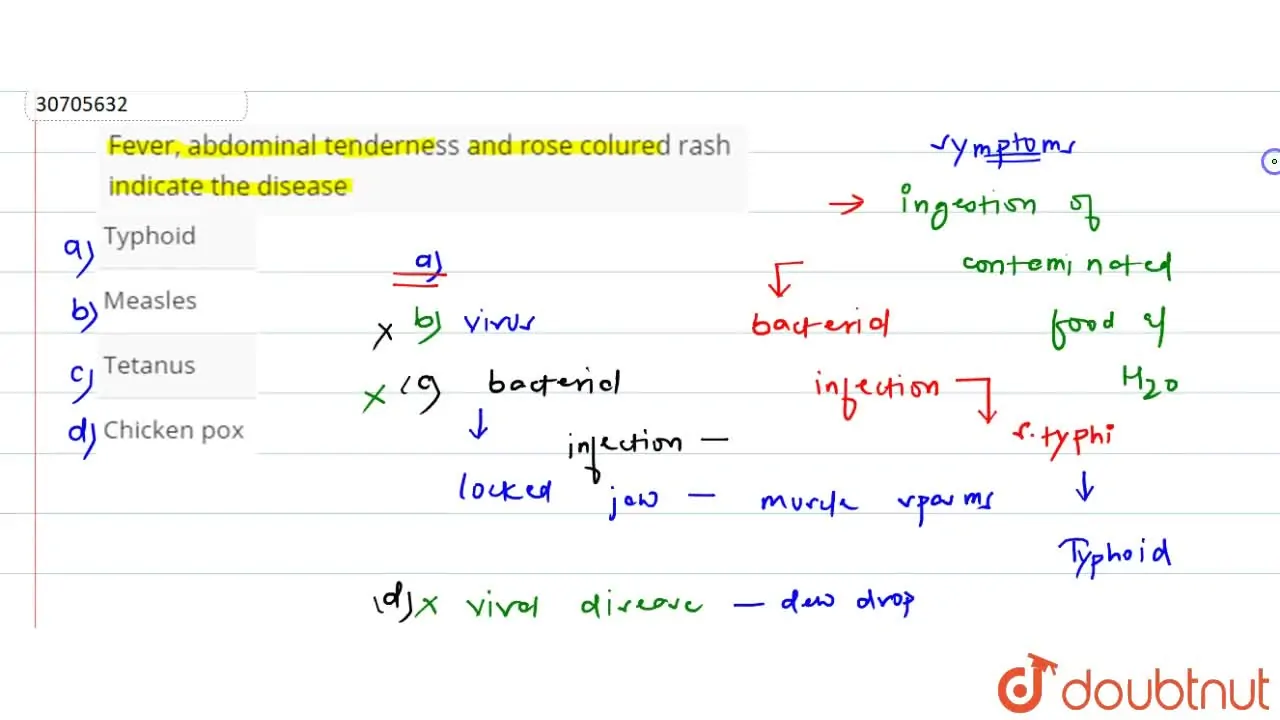 30705632
Fever, abdominal tenderness and rose colured rash
indicate the disease
a) Typhoid
b) Measles
c) Tetanus
d) Chicken pox
symptoms
→ ingestion of
contaminated
food &
H2O
bacterial
infection
s.typhi
↓
Typhoid
a)
x b) virus
x (c) bacterial
↓
infection —
locked jaw — muscle spasms
(d) x viral disease — dew drop
doubtnut